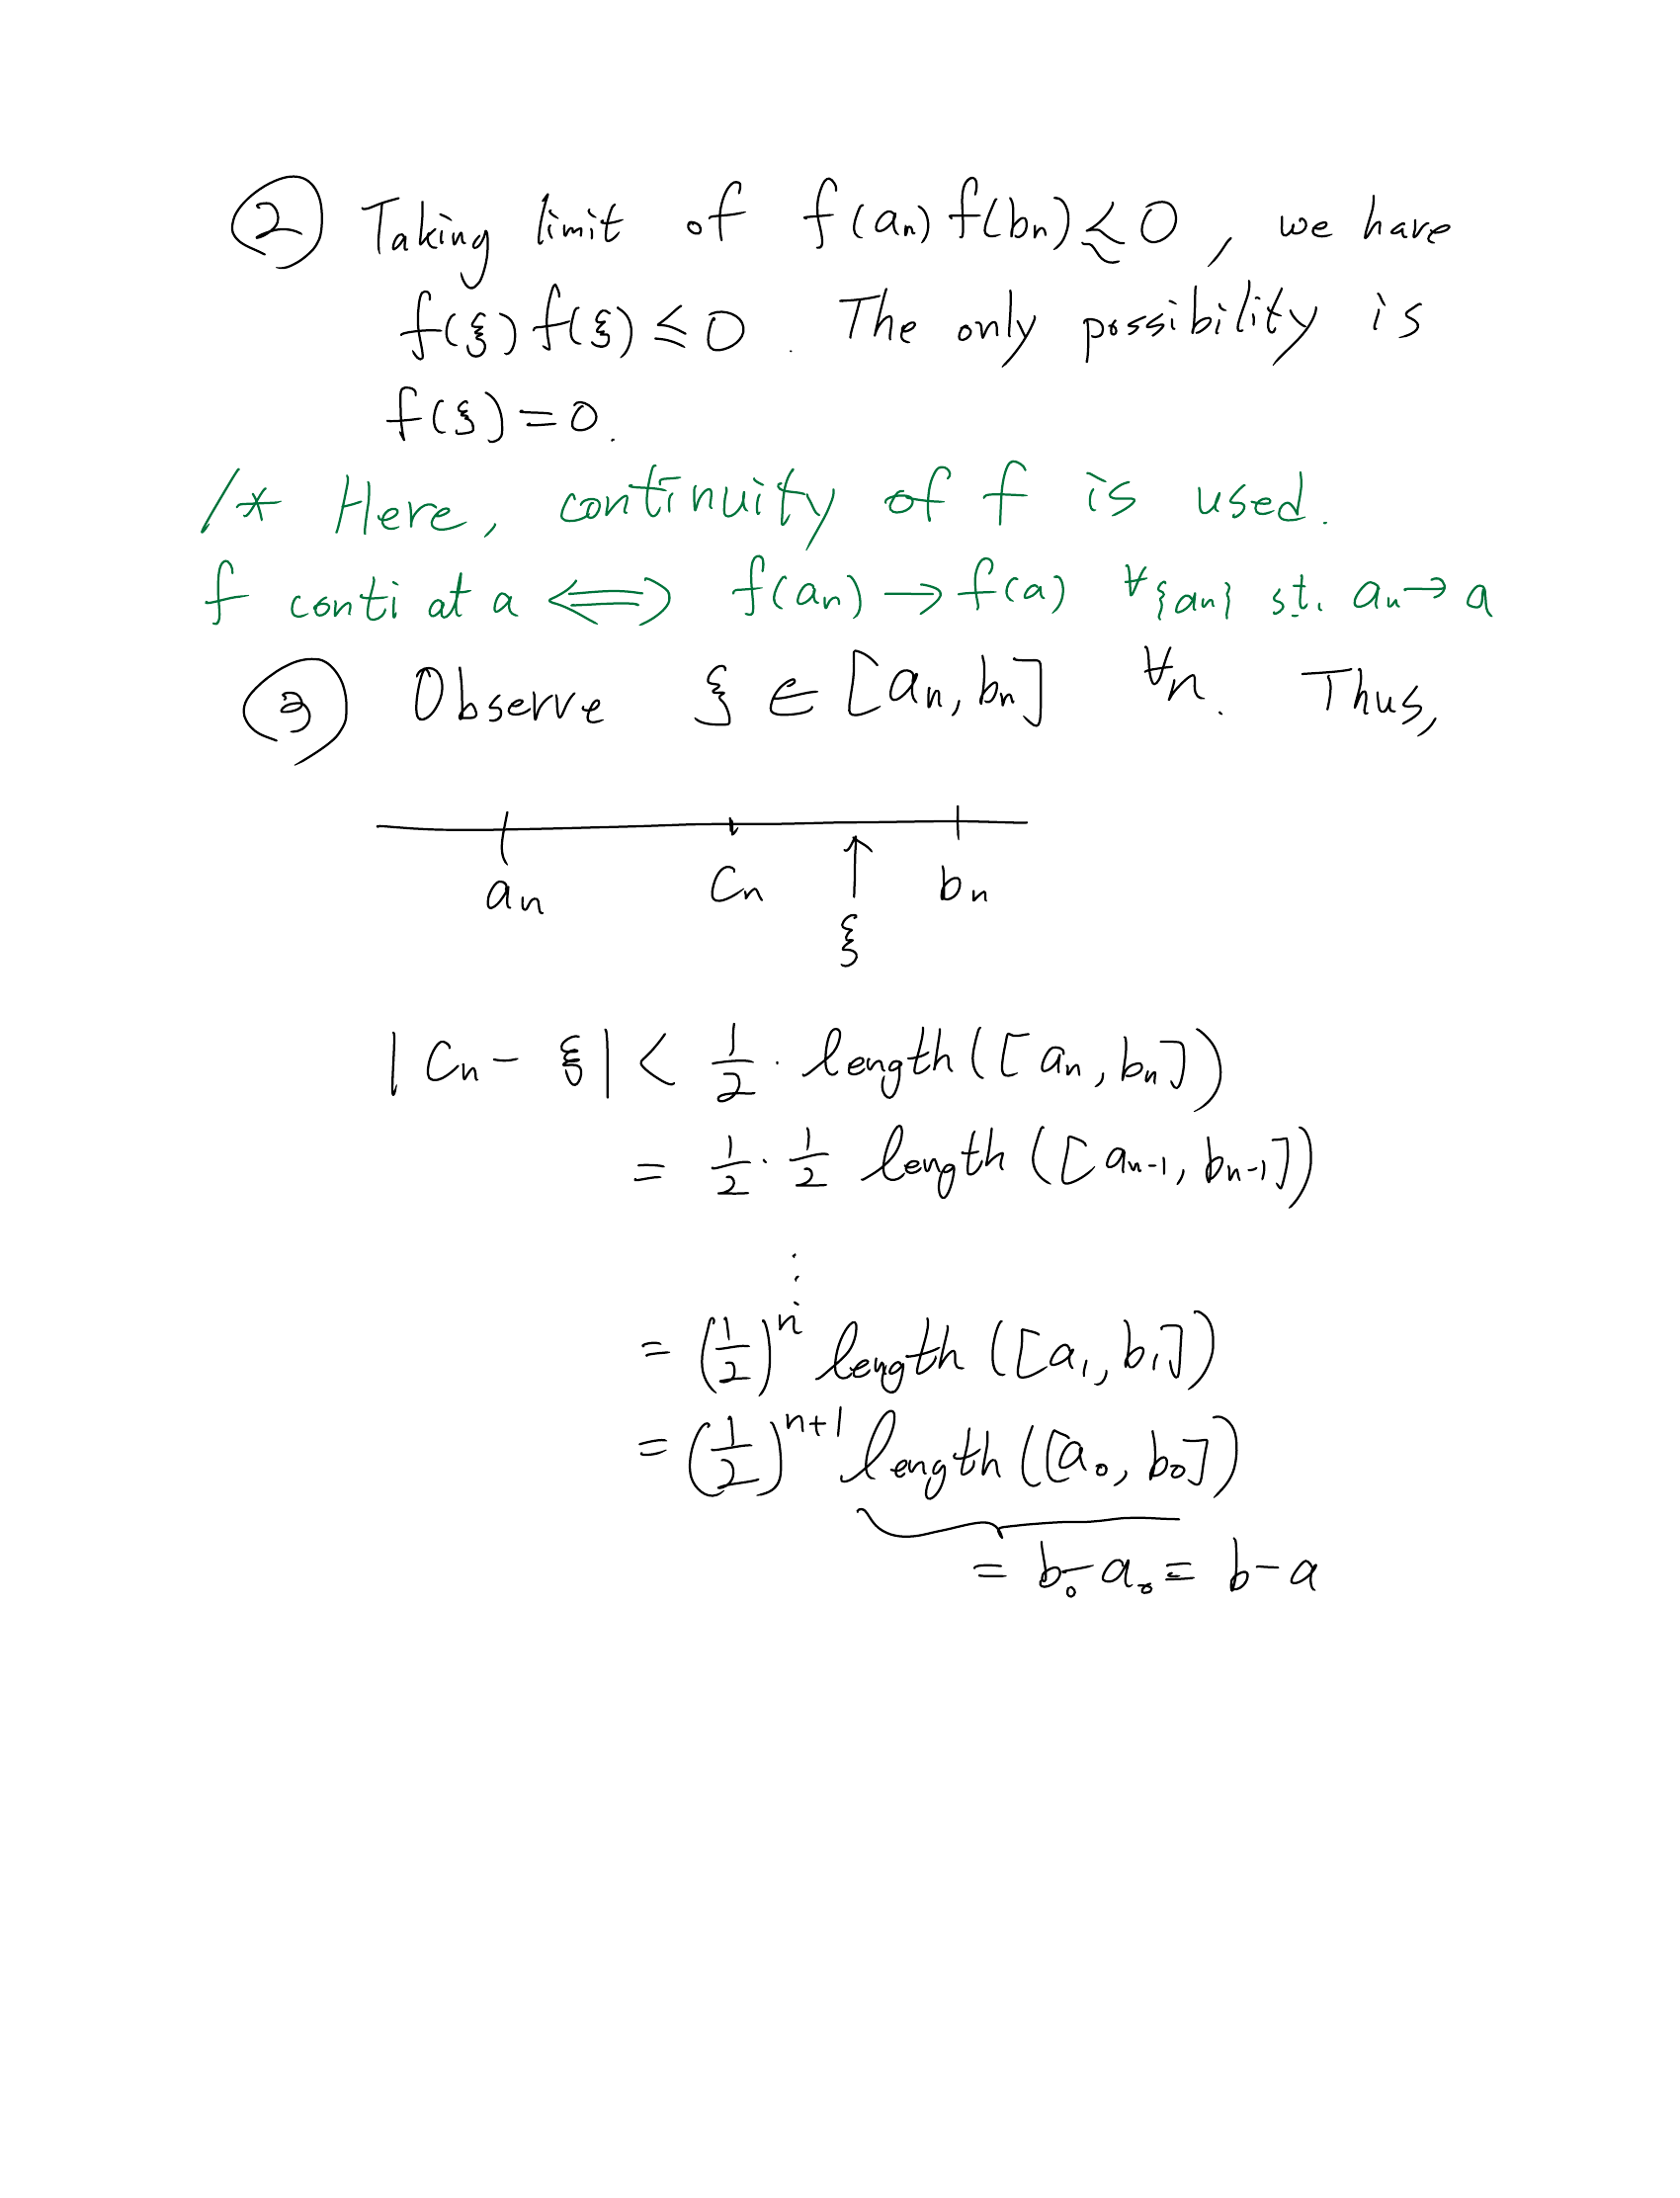 ② Taking limit of f(aₙ) f(bₙ) ≤ 0 , we have
f(ξ) f(ξ) ≤ 0 . The only possibility is
f(ξ) = 0.
/* Here, continuity of f is used.
f conti at a ⟺ f(aₙ) → f(a) ∀{aₙ} s.t. aₙ → a
③ Observe ξ ∈ [aₙ, bₙ] ∀n. Thus,
aₙ cₙ bₙ
ξ
|cₙ - ξ| < 1/2 · length([aₙ, bₙ])
= 1/2 · 1/2 length([aₙ₋₁, bₙ₋₁])
⋮
= (1/2)ⁿ length([a₁, b₁])
= (1/2)ⁿ⁺¹ length([a₀, b₀])
= b₀ - a₀ = b - a